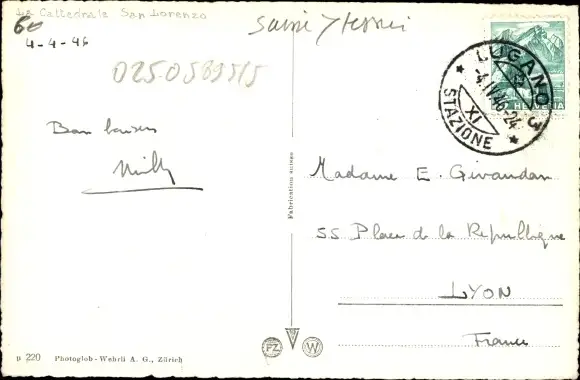 La Cattedrale San Lorenzo
60
4-4-46
Suisse / Tessin
0250569515
LUGANO 3
-4.IV.46-24
XI
STAZIONE
HELVETIA
Bons baisers
Milly
Madame E. Girandan
55 Place de la République
LYON
France
Fabrication suisse
p 220 Photoglob-Wehrli A. G., Zürich
PZ
W